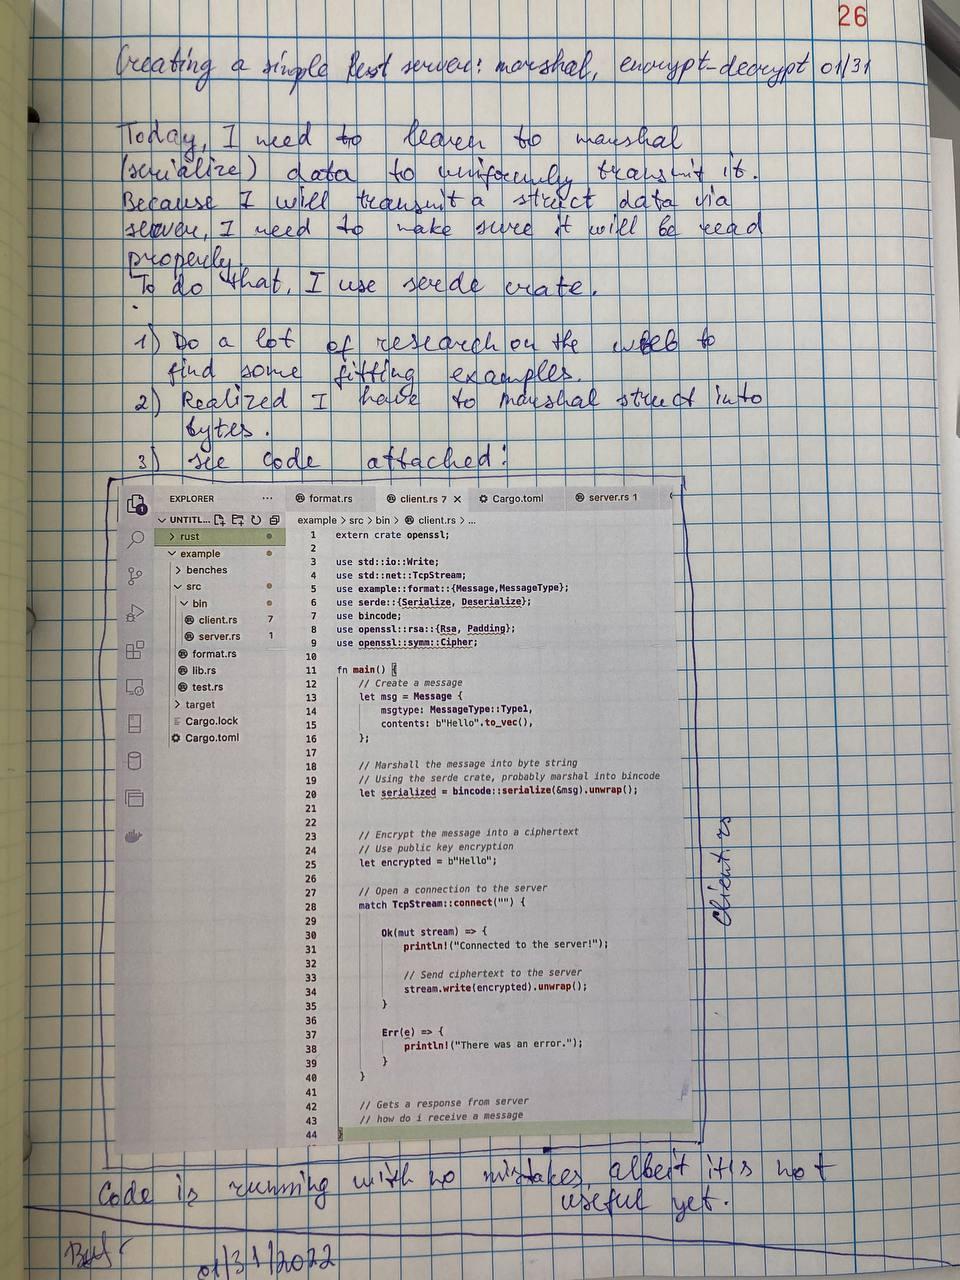 26
Creating a simple Rest server: marshal, encrypt-decrypt 01/31
Today, I need to learn to marshal
(serialize) data to uniformly transmit it.
Because I will transmit a struct data via
server, I need to make sure it will be read
properly.
To do that, I use serde crate.
1) Do a lot of research on the web to
find some fitting examples.
2) Realized I have to marshal struct into
bytes.
3) see code attached:
EXPLORER ...
UNTITL...
> rust
example
> benches
src
bin
client.rs 7
server.rs 1
format.rs
lib.rs
test.rs
> target
Cargo.lock
Cargo.toml
format.rs client.rs 7 × Cargo.toml server.rs 1
example > src > bin > client.rs > ...
1 extern crate openssl;
2
3 use std::io::Write;
4 use std::net::TcpStream;
5 use example::format::{Message,MessageType};
6 use serde::{Serialize, Deserialize};
7 use bincode;
8 use openssl::rsa::{Rsa, Padding};
9 use openssl::symm::Cipher;
10
11 fn main() {
12 // Create a message
13 let msg = Message {
14 msgtype: MessageType::Type1,
15 contents: b"Hello".to_vec(),
16 };
17
18 // Marshall the message into byte string
19 // Using the serde crate, probably marshal into bincode
20 let serialized = bincode::serialize(&msg).unwrap();
21
22
23 // Encrypt the message into a ciphertext
24 // Use public key encryption
25 let encrypted = b"Hello";
26
27 // Open a connection to the server
28 match TcpStream::connect("") {
29
30 Ok(mut stream) => {
31 println!("Connected to the server!");
32
33 // Send ciphertext to the server
34 stream.write(encrypted).unwrap();
35 }
36
37 Err(e) => {
38 println!("There was an error.");
39 }
40 }
41
42 // Gets a response from server
43 // how do i receive a message
44 }
client.rs
Code is running with no mistakes, albeit it is not
useful yet.
01/31/2022